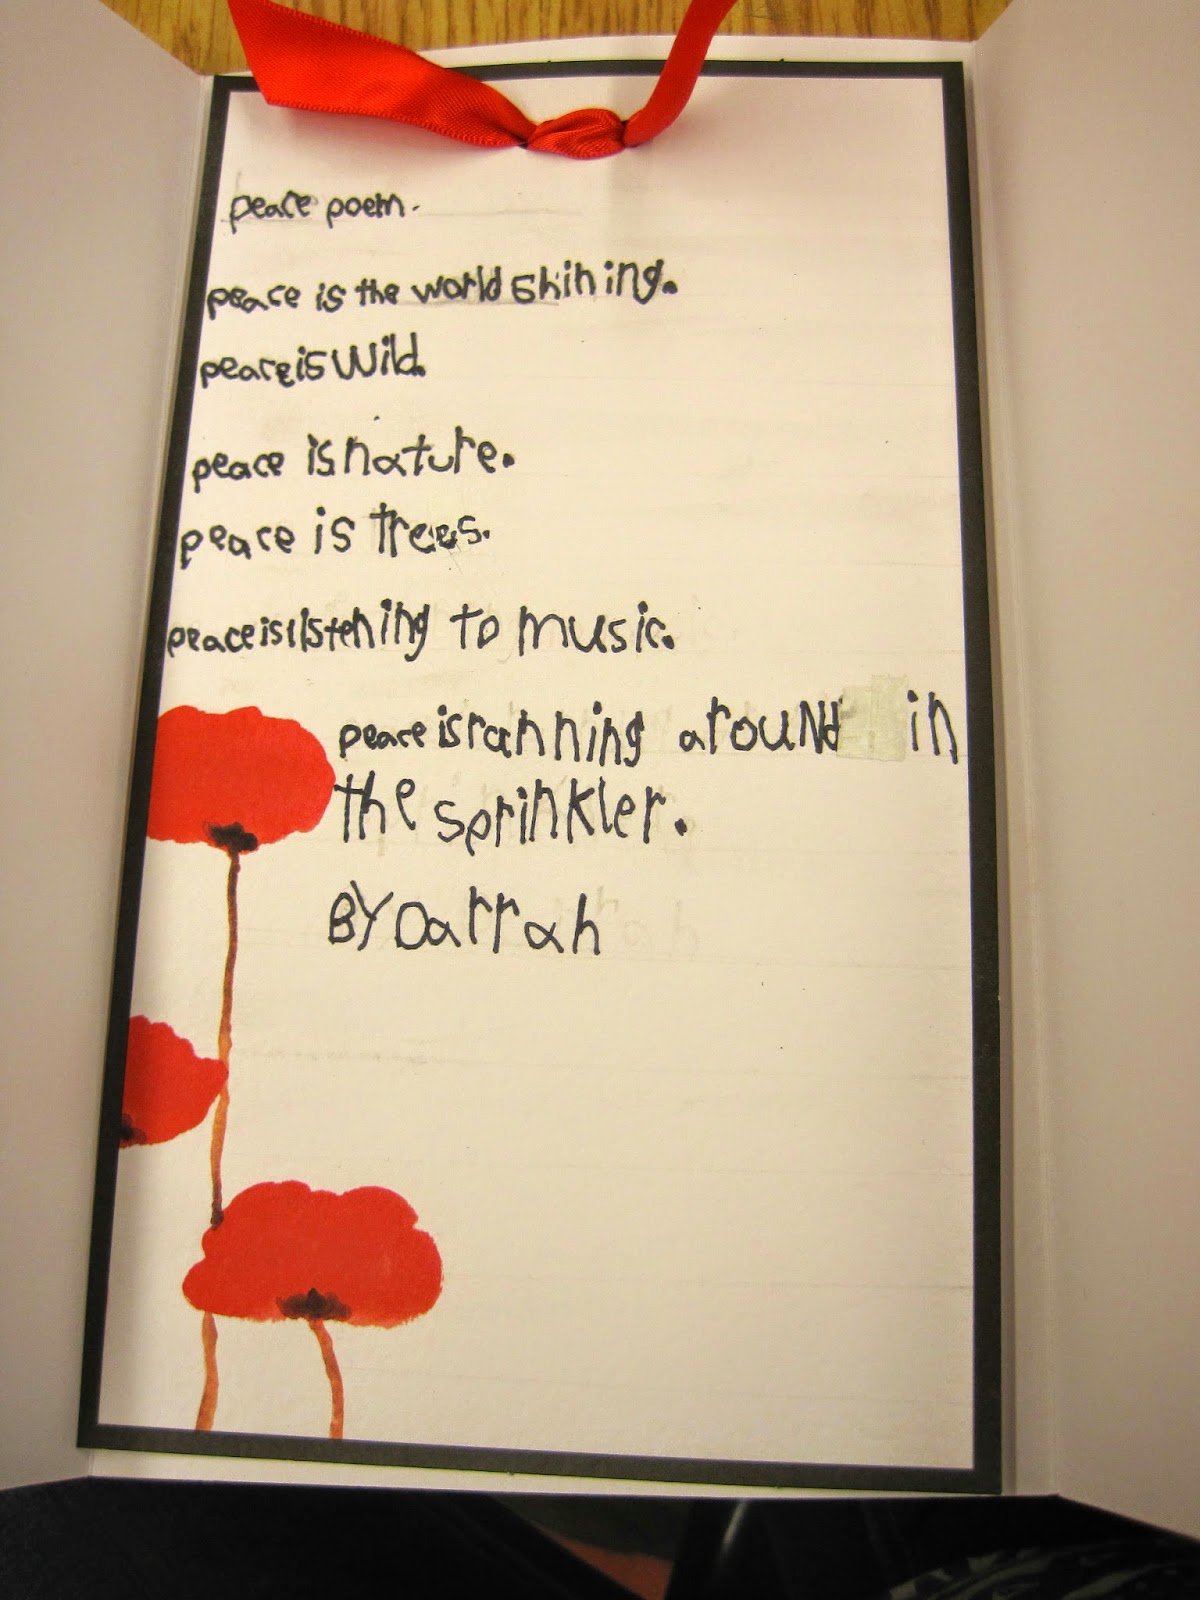 peace poem.
peace is the world shining.
peace is wild.
peace is nature.
peace is trees.
peace is listening to music.
peace is ranning around in
the sprinkler.
BY Darrah